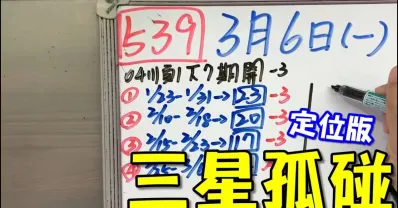 539 3月6日(一)
04順下7期開-3
① 1/23-1/31→23-3
② 2/10-2/18→20-3
③ 2/15-2/23→17-3
定位版
三星孤碰